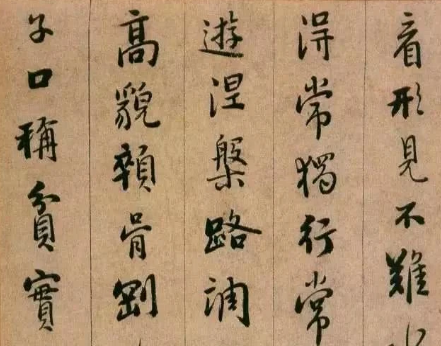 看形見不難水
得常獨行常
遊涅槃路調
高貌顇骨剛
子口稱貧實